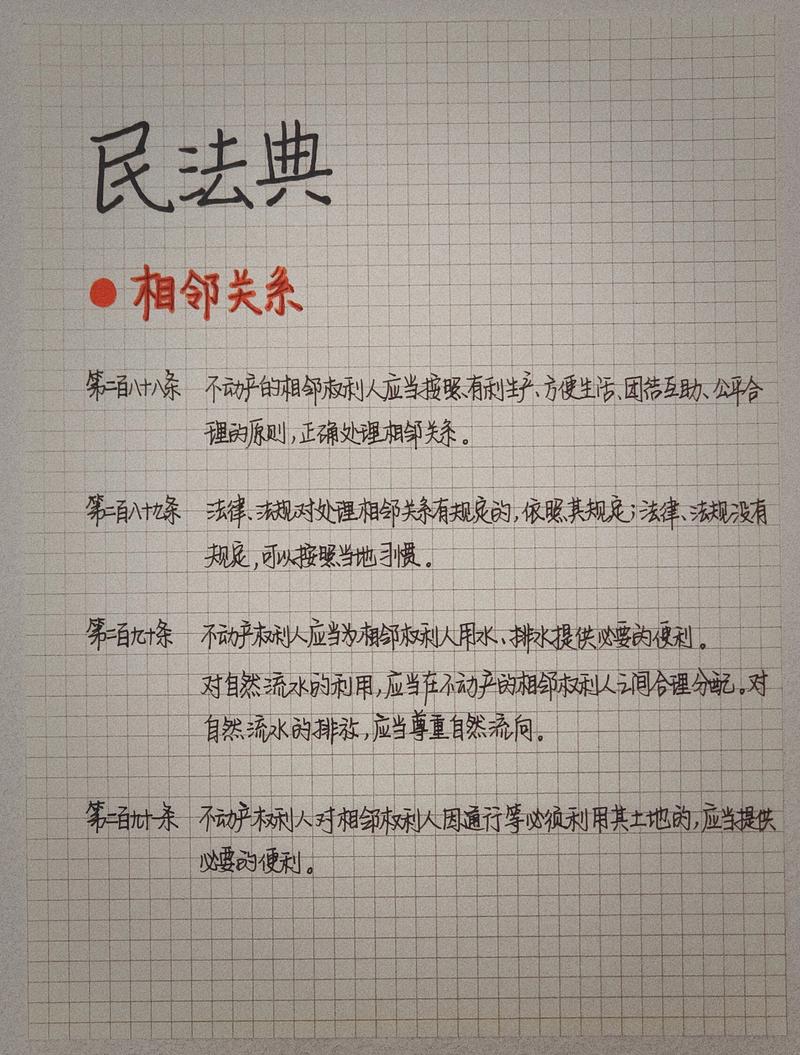 民法典
● 相邻关系
第二百八十八条 不动产的相邻权利人应当按照有利生产、方便生活、团结互助、公平合
理的原则,正确处理相邻关系。
第二百八十九条 法律、法规对处理相邻关系有规定的,依照其规定;法律、法规没有
规定,可以按照当地习惯。
第二百九十条 不动产权利人应当为相邻权利人用水、排水提供必要的便利。
对自然流水的利用,应当在不动产的相邻权利人之间合理分配。对
自然流水的排放,应当尊重自然流向。
第二百九十一条 不动产权利人对相邻权利人因通行等必须利用其土地的,应当提供
必要的便利。